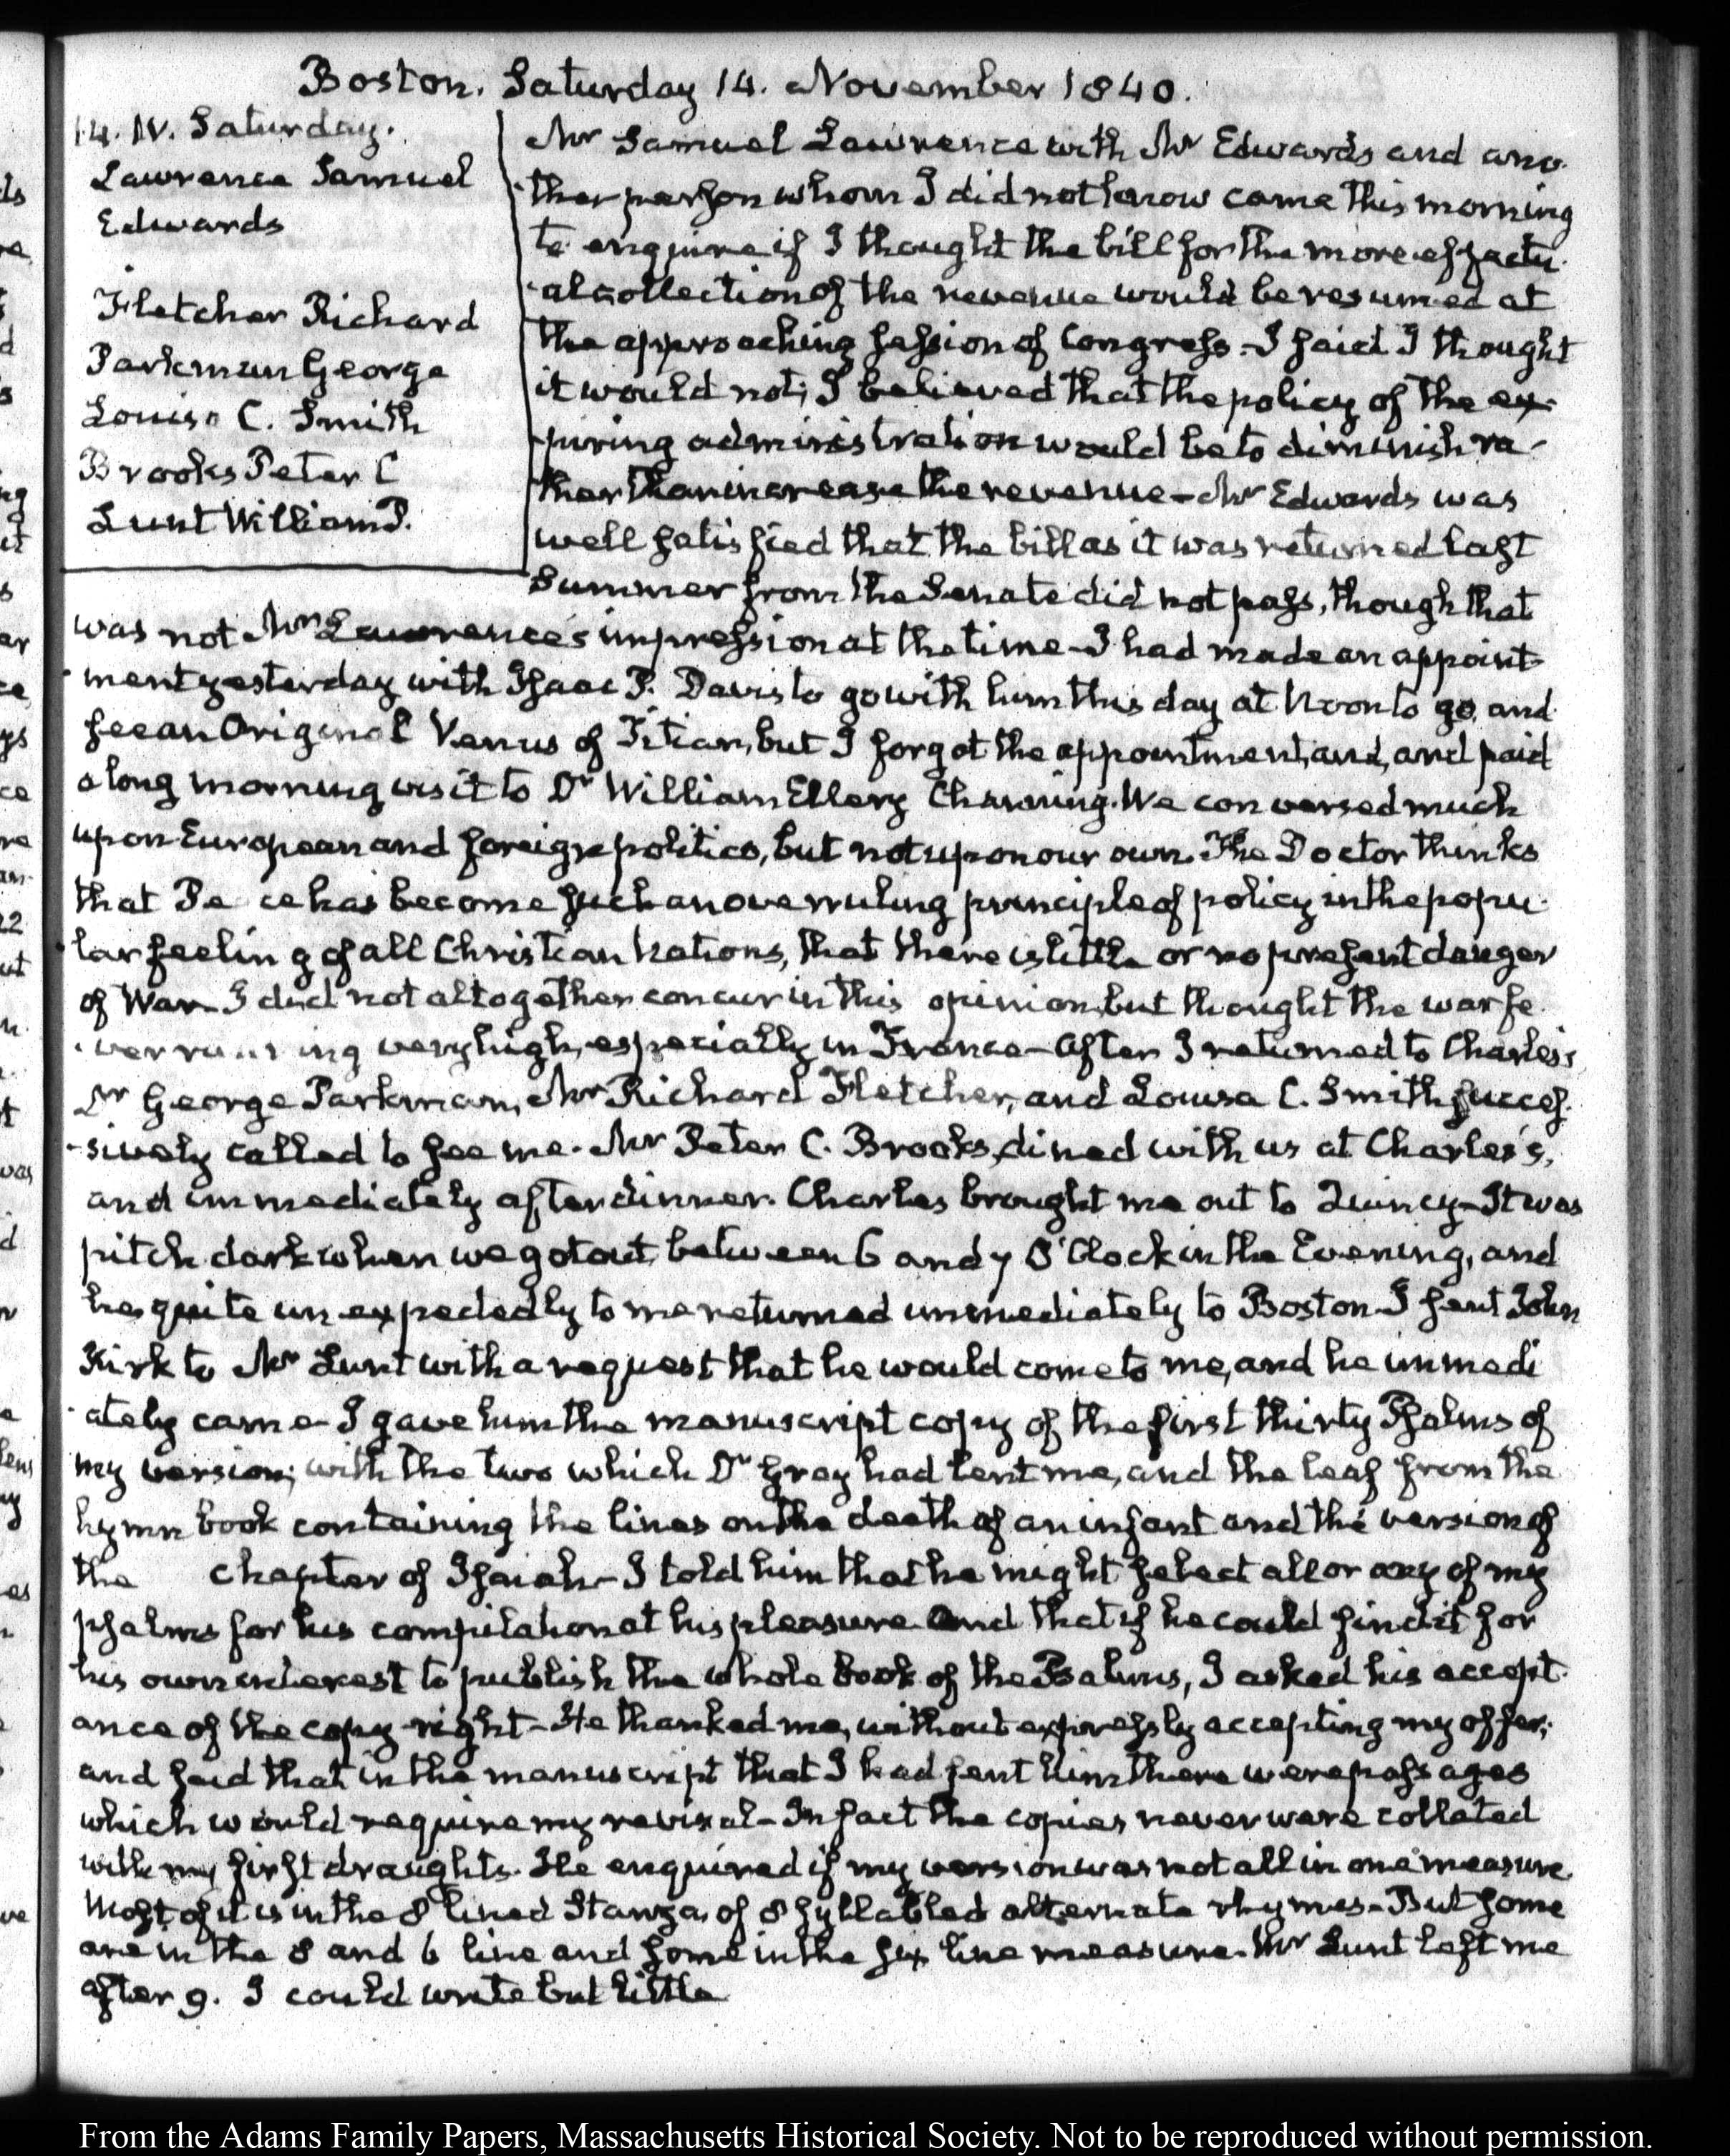 Boston. Saturday 14. November 1840.
14. IV. Saturday.
Lawrence Samuel
Edwards
Fletcher Richard
Parkman George
Louisa C. Smith
Brooks Peter C
Lunt William P.
Mr Samuel Lawrence with Mr Edwards and ano-
-ther person whom I did not know came this morning
to enquire if I thought the bill for the more effectu-
-al collection of the revenue would be resumed at
the approaching session of Congress. I said I thought
it would not; I believed that the policy of the ex-
-piring administration would be to diminish ra-
ther than increase the revenue - Mr Edwards was
well satisfied that the bill as it was returned last
Summer from the Senate did not pass, though that
was not Mr Lawrence's impression at the time - I had made an appoint-
-ment yesterday with Isaac P. Davis to go with him this day at Noon to go and
see an Original Venus of Titian, but I forgot the appointment, and, and paid
a long morning visit to Dr William Ellery Channing. We conversed much
upon European and foreign politics, but not upon our own. The Doctor thinks
that Peace has become such an overruling principle of policy in the popu-
-lar feeling of all Christian Nations, that there is little or no present danger
of War - I did not altogether concur in this opinion, but thought the war fe-
-ver running very high, especially in France - After I returned to Charles's
Dr George Parkman, Mr Richard Fletcher, and Louisa C. Smith succes-
-sively called to see me. Mr Peter C. Brooks, dined with us at Charles's,
and immediately after dinner. Charles brought me out to Quincy - It was
pitch dark when we got out, between 6 and 7 O'Clock in the Evening, and
he quite unexpectedly to me returned immediately to Boston I sent John
Kirk to Mr Lunt with a request that he would come to me, and he immedi
-ately came - I gave him the manuscript copy of the first thirty Psalms of
my version; with the two which Dr Gray had lent me, and the leaf from the
hymn book containing the lines on the death of an infant and the version of
the chapter of Isaiah - I told him that he might select all or any of my
psalms for his compilation at his pleasure. And that if he could find it for
his own interest to publish the whole book of the Psalms, I asked his accept-
ance of the copy-right - He thanked me, without expressly accepting my offer;
and said that in the manuscript that I had sent him there were passages
which would require my revisal - In fact the copies never were collated
with my first draughts. He enquired if my version was not all in one measure.
Most of it is in the 8 lined Stanza, of 8 syllabled alternate rhymes - But some
are in the 8 and 6 line and some in the six line measure. Mr Lunt left me
after 9. I could write but little
From the Adams Family Papers, Massachusetts Historical Society. Not to be reproduced without permission.